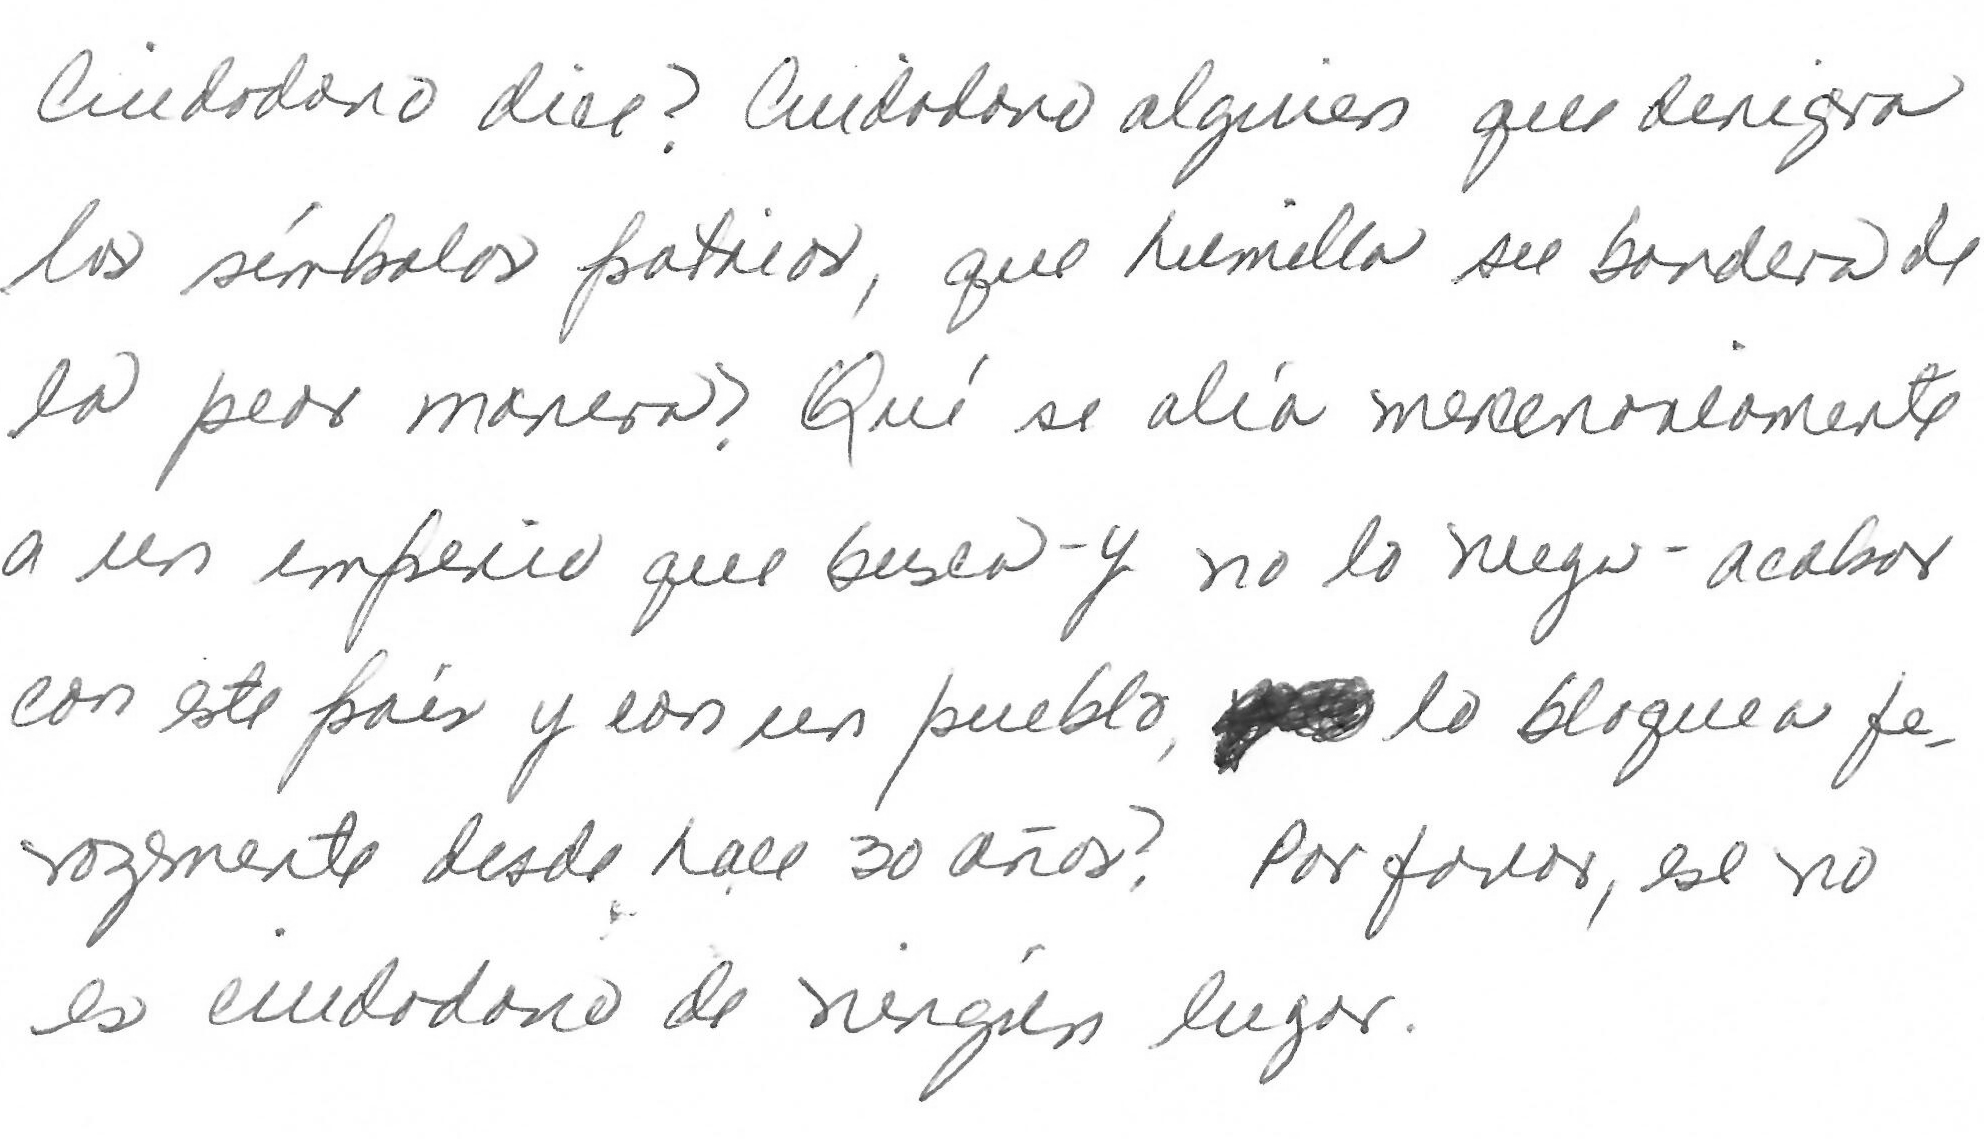 Ciudadano dice? Ciudadano alguien que denigra
los símbolos patrios, que humilla su bandera de
la peor manera? Qué se alía mercenariamente
a un imperio que busca -y no lo niega- acabar
con este país y con un pueblo, lo bloquea fe-
rozmente desde hace 30 años? Por favor, ese no
es ciudadano de ningún lugar.